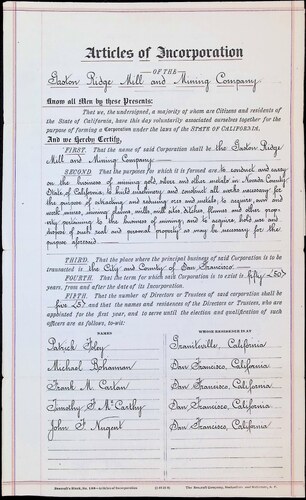 Articles of Incorporation
OF THE
Gaston Ridge Mill and Mining Company
Know all Men by these Presents:
That we, the undersigned, a majority of whom are Citizens and residents of
the State of California, have this day voluntarily associated ourselves together for the
purpose of forming a Corporation under the laws of the STATE OF CALIFORNIA.
And we Hereby Certify,
FIRST. That the name of said Corporation shall be the Gaston Ridge
Mill and Mining Company
SECOND. That the purposes for which it is formed are to conduct and carry
on the business of mining gold, silver and other metals in Nevada County
State of California, to build and construct all works necessary for
the purpose of extracting and reducing ores and metals, to acquire, own and
work mines, mining claims, mills, mill sites, ditches, flumes and other prop-
erty pertaining to the business of mining, and to acquire, hold, use and
dispose of such real and personal property as may be necessary for the
purpose aforesaid
THIRD. That the place where the principal business of said Corporation is to be
transacted is the City and County of San Francisco.
FOURTH. That the term for which said Corporation is to exist is fifty (50)
years, from and after the date of its Incorporation.
FIFTH. That the number of Directors or Trustees of said corporation shall be
five (5) and that the names and residences of the Directors or Trustees, who are
appointed for the first year, and to serve until the election and qualification of such
officers are as follows, to-wit:
NAMES WHOSE RESIDENCE IS AT
Patrick Foley Graniteville, California
Michael Bohannan San Francisco, California
Frank M. Carlan San Francisco, California
Timothy F. McCarthy San Francisco, California
John F. Nugent San Francisco, California